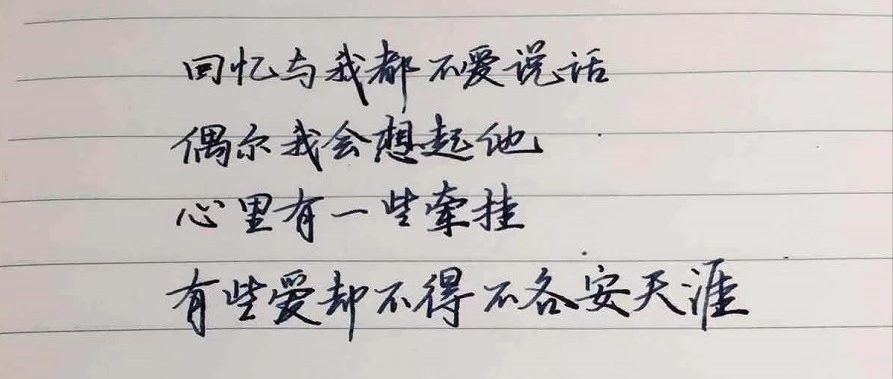 回忆与我都不爱说话
偶尔我会想起他
心里有一些牵挂
有些爱却不得不各安天涯